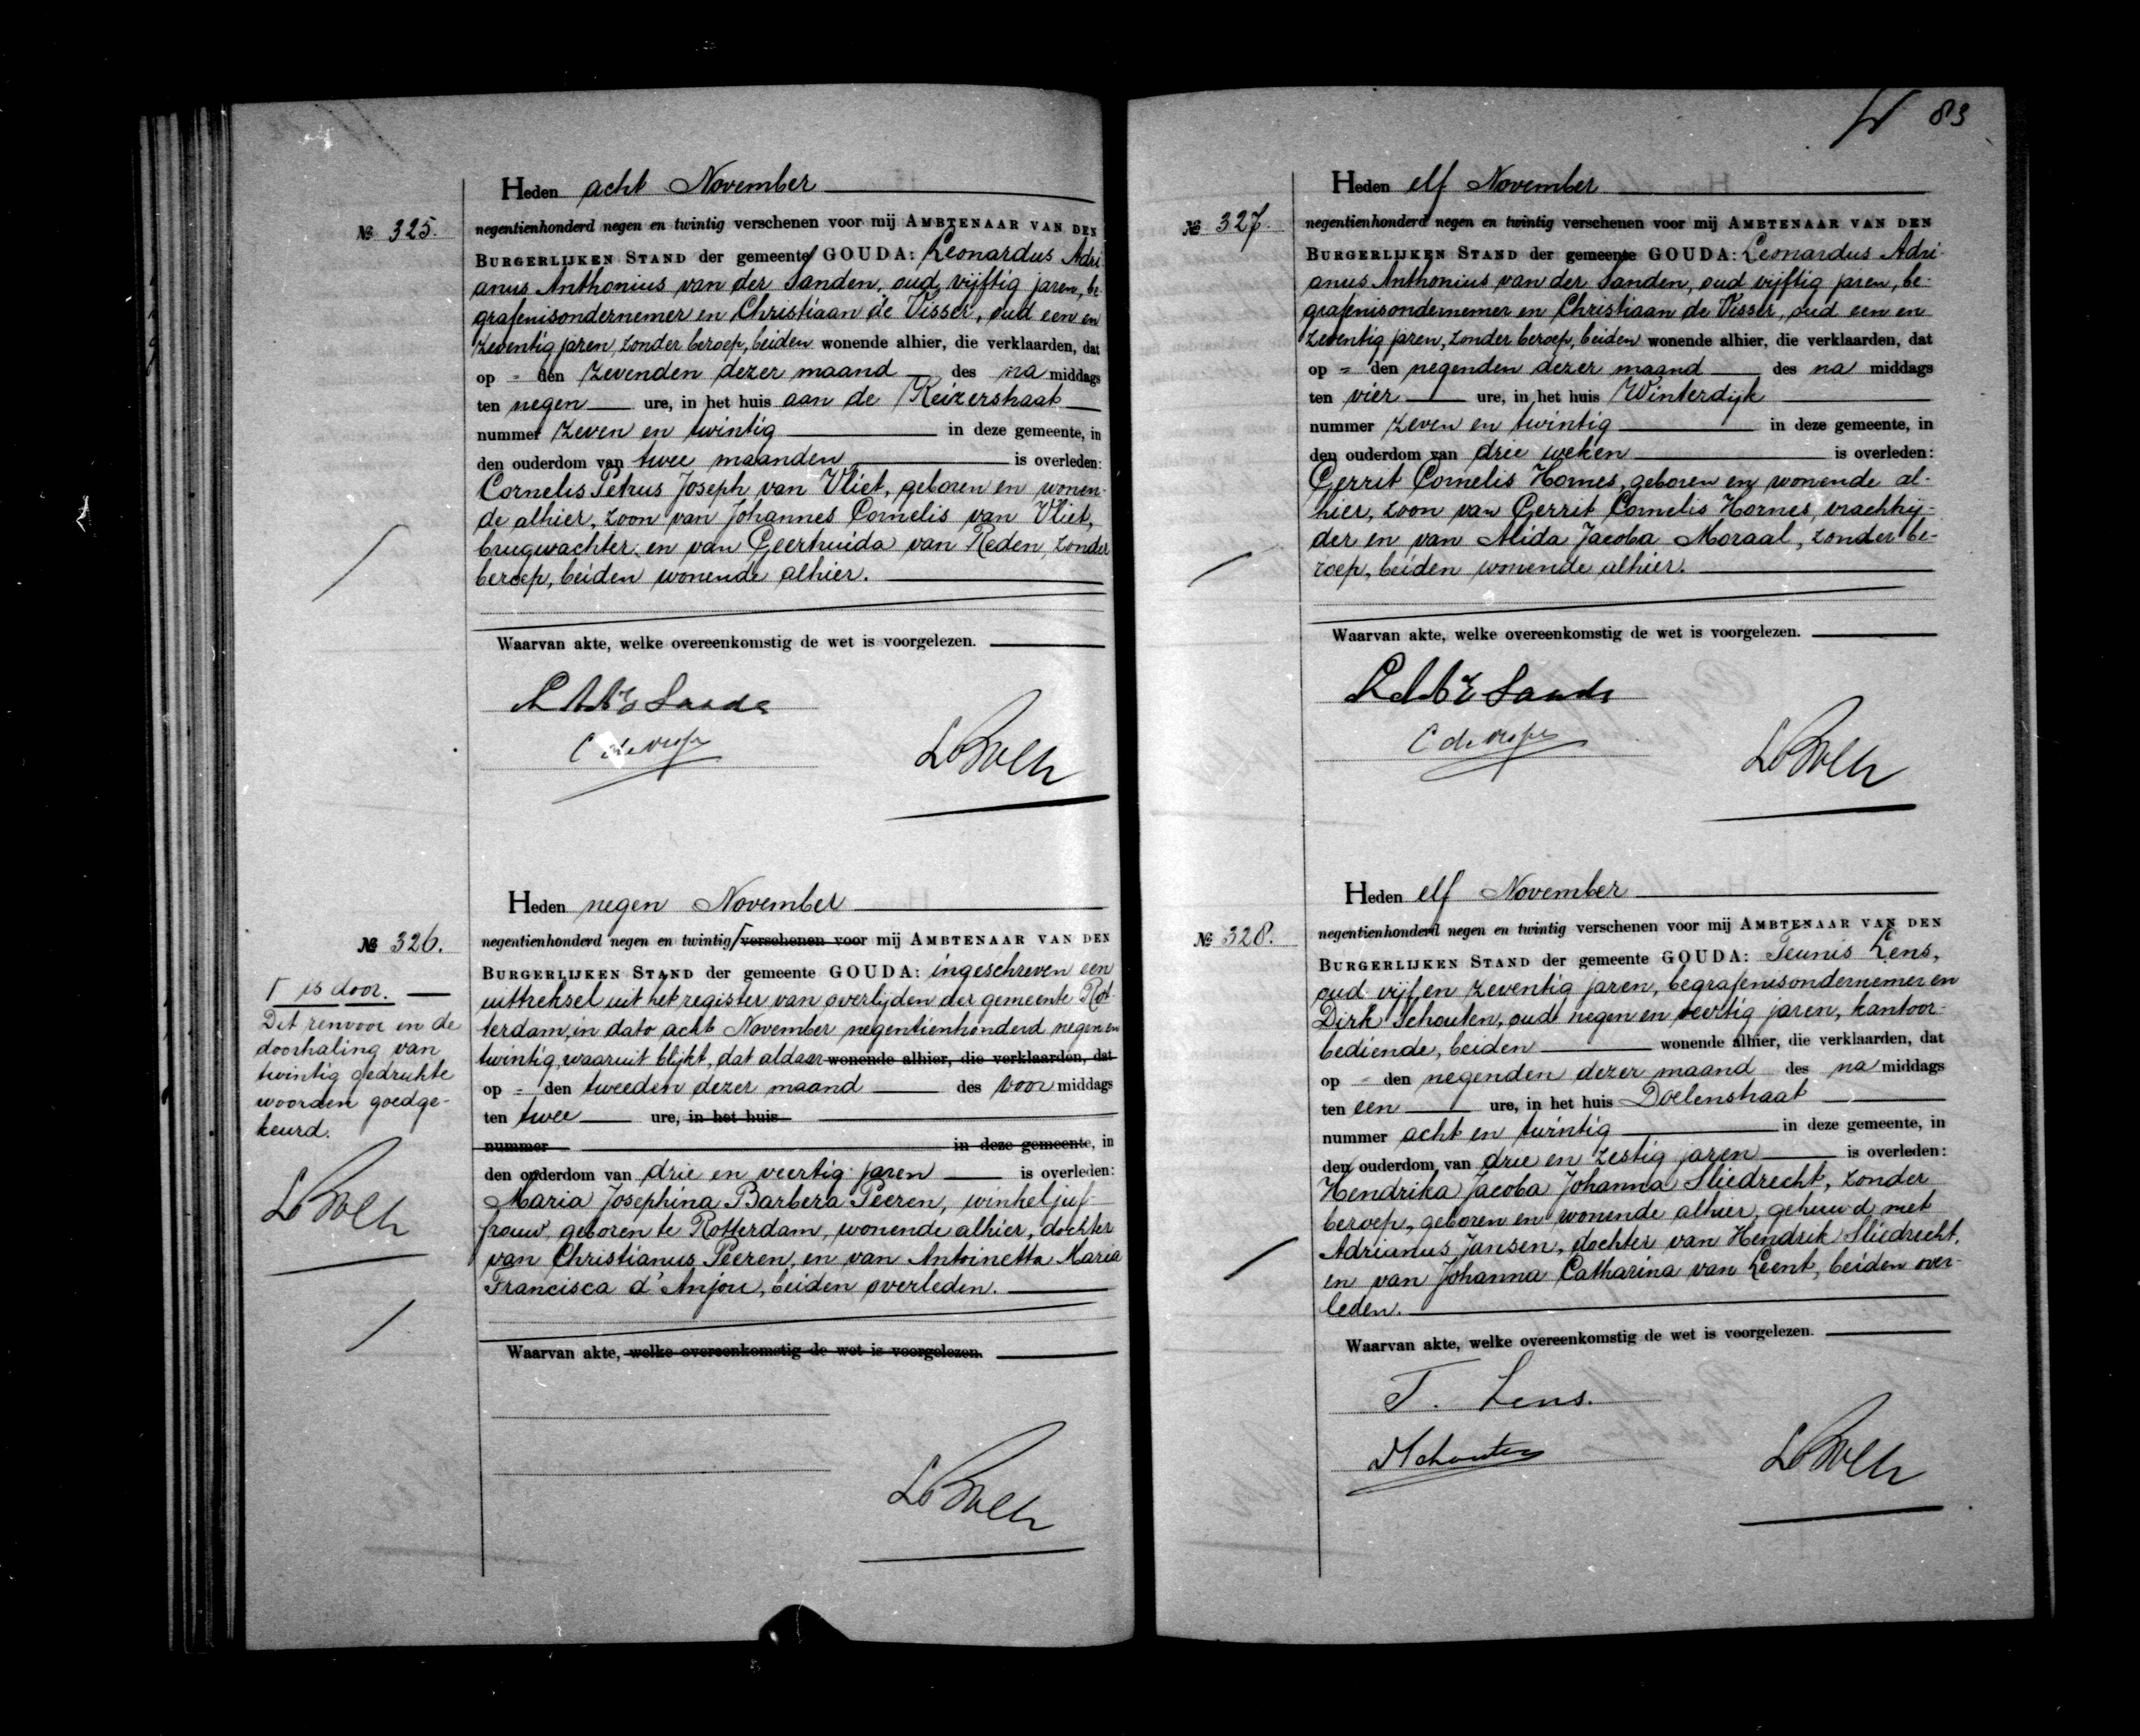 Heden acht November
№ 325.
negentienhonderd negen en twintig verschenen voor mij AMBTENAAR VAN DEN
BURGERLIJKEN STAND der gemeente GOUDA: Leonardus Adri-
anus Anthonius van der Sanden, oud vijftig jaren, be-
grafenisondernemer en Christiaan de Visser, oud een en
zeventig jaren, zonder beroep, beiden wonende alhier, die verklaarden, dat
op - den zevenden dezer maand des na middags
ten negen ure, in het huis aan de Keizerstraat
nummer zeven en twintig in deze gemeente, in
den ouderdom van twee maanden is overleden:
Cornelis Petrus Joseph van Vliet, geboren en wonen-
de alhier, zoon van Johannes Cornelis van Vliet,
brugwachter en van Geertruida van Reden, zonder
beroep, beiden wonende alhier.
Waarvan akte, welke overeenkomstig de wet is voorgelezen.
C de Visser
Heden negen November
№ 326.
negentienhonderd negen en twintig verschenen voor mij AMBTENAAR VAN DEN
BURGERLIJKEN STAND der gemeente GOUDA: ingeschreven een
uittreksel uit het register van overlijden der gemeente Rot-
terdam, in dato acht November negentienhonderd negen en
twintig, waaruit blijkt, dat aldaar wonende alhier, die verklaarden, dat
op - den tweeden dezer maand des voor middags
ten twee ure, in het huis
nummer in deze gemeente, in
den ouderdom van drie en veertig jaren is overleden:
Maria Josephina Barbera Peeren, winkeljuf-
frouw, geboren te Rotterdam, wonende alhier, dochter
van Christianus Peeren, en van Antoinetta Maria
Francisca d'Anjou, beiden overleden.
Waarvan akte, welke overeenkomstig de wet is voorgelezen.
Γ is door.
Dit renvooi en de
doorhaling van
twintig gedrukte
woorden goedge-
keurd.
83
Heden elf November
№ 327.
negentienhonderd negen en twintig verschenen voor mij AMBTENAAR VAN DEN
BURGERLIJKEN STAND der gemeente GOUDA: Leonardus Adri-
anus Anthonius van der Sanden, oud vijftig jaren, be-
grafenisondernemer en Christiaan de Visser, oud een en
zeventig jaren, zonder beroep, beiden wonende alhier, die verklaarden, dat
op - den negenden dezer maand des na middags
ten vier ure, in het huis Winterdijk
nummer zeven en twintig in deze gemeente, in
den ouderdom van drie weken is overleden:
Gerrit Cornelis Hornes, geboren en wonende al-
hier, zoon van Gerrit Cornelis Hornes, vrachtrij-
der en van Alida Jacoba Moraal, zonder be-
roep, beiden wonende alhier.
Waarvan akte, welke overeenkomstig de wet is voorgelezen.
C de Visser
Heden elf November
№ 328.
negentienhonderd negen en twintig verschenen voor mij AMBTENAAR VAN DEN
BURGERLIJKEN STAND der gemeente GOUDA: Teunis Lens,
oud vijf en zeventig jaren, begrafenisondernemer en
Dirk Schouten, oud negen en veertig jaren, kantoor-
bediende, beiden wonende alhier, die verklaarden, dat
op - den negenden dezer maand des na middags
ten een ure, in het huis Doelenstraat
nummer acht en twintig in deze gemeente, in
den ouderdom van drie en zestig jaren is overleden:
Hendrika Jacoba Johanna Sliedrecht, zonder
beroep, geboren en wonende alhier, gehuwd met
Adrianus Jansen, dochter van Hendrik Sliedrecht,
en van Johanna Catharina van Leent, beiden over-
leden.
Waarvan akte, welke overeenkomstig de wet is voorgelezen.
T. Lens.
DSchouten